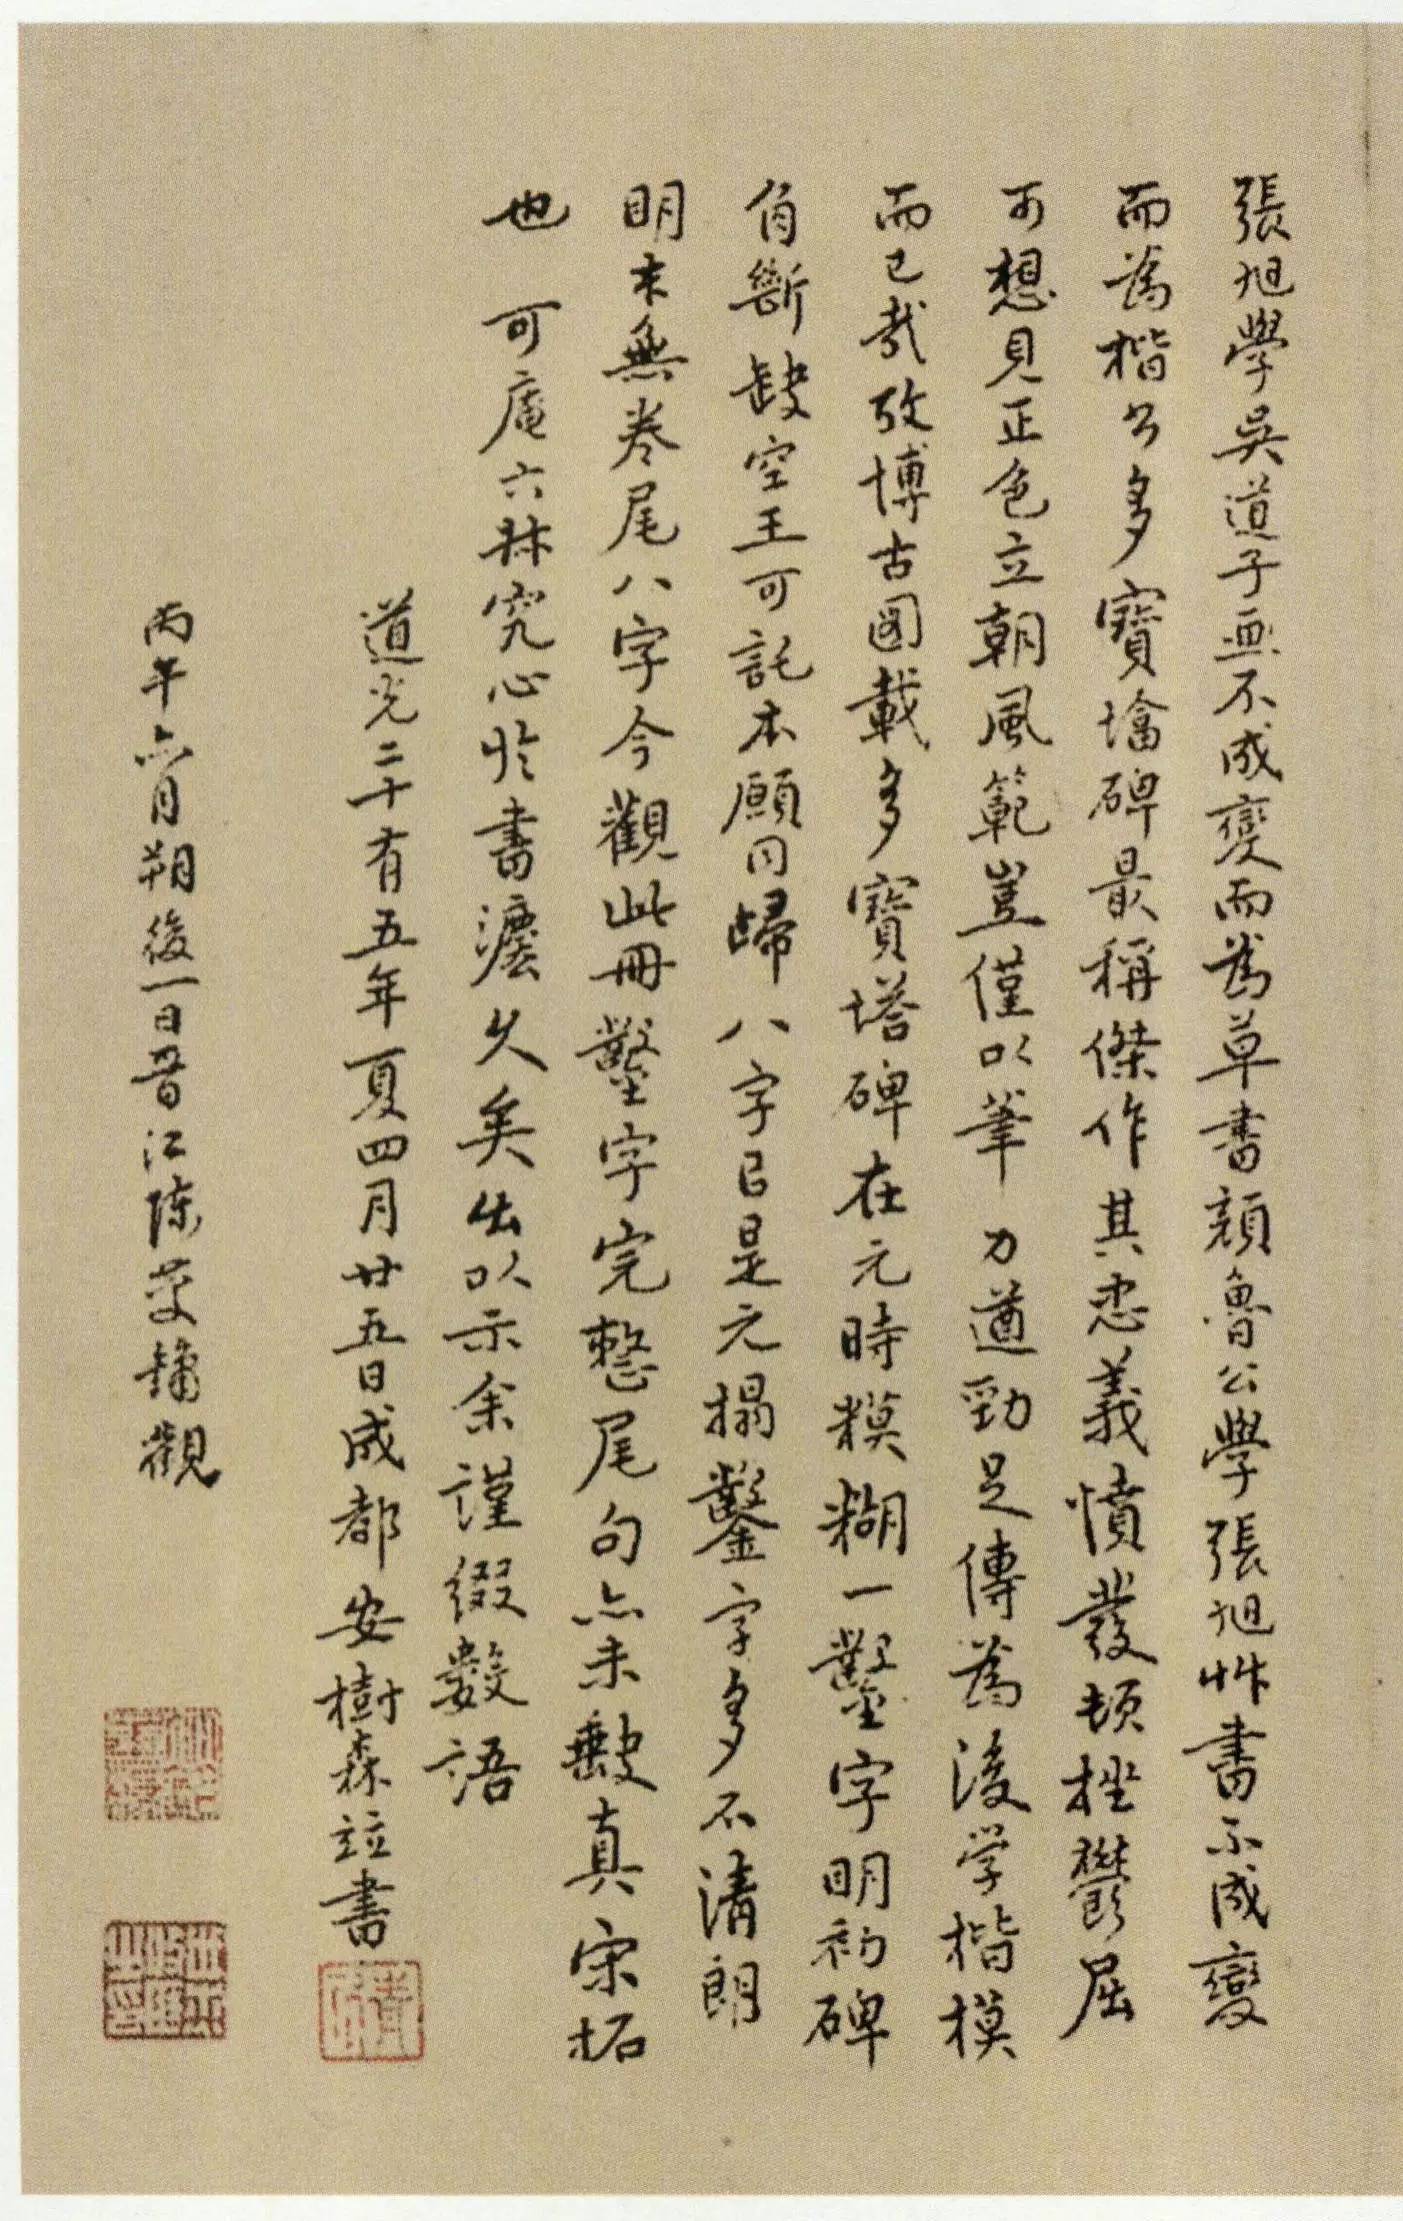 張旭學吳道子畫不成變而為草書顏魯公學張旭艸書不成變
而為楷公多寶塔碑最稱傑作其忠義憤發頓挫鬱屈
可想見正色立朝風範豈僅以筆力遒勁足傳為後学楷模
而已哉攷博古圖載多寶塔碑在元時糢糊一鑿字明初碑
角斷缺空王可託本願同歸八字已是元搨鑿字多不清朗
明末無卷尾八字今觀此冊鑿字完整尾句亦未缺真宋拓
也 可庵六𠦑究心於書灋久矣出以示余謹綴數語
道光二十有五年夏四月廿五日成都安樹森竝書
丙午六月朔後一日晉江陳慶鏞觀